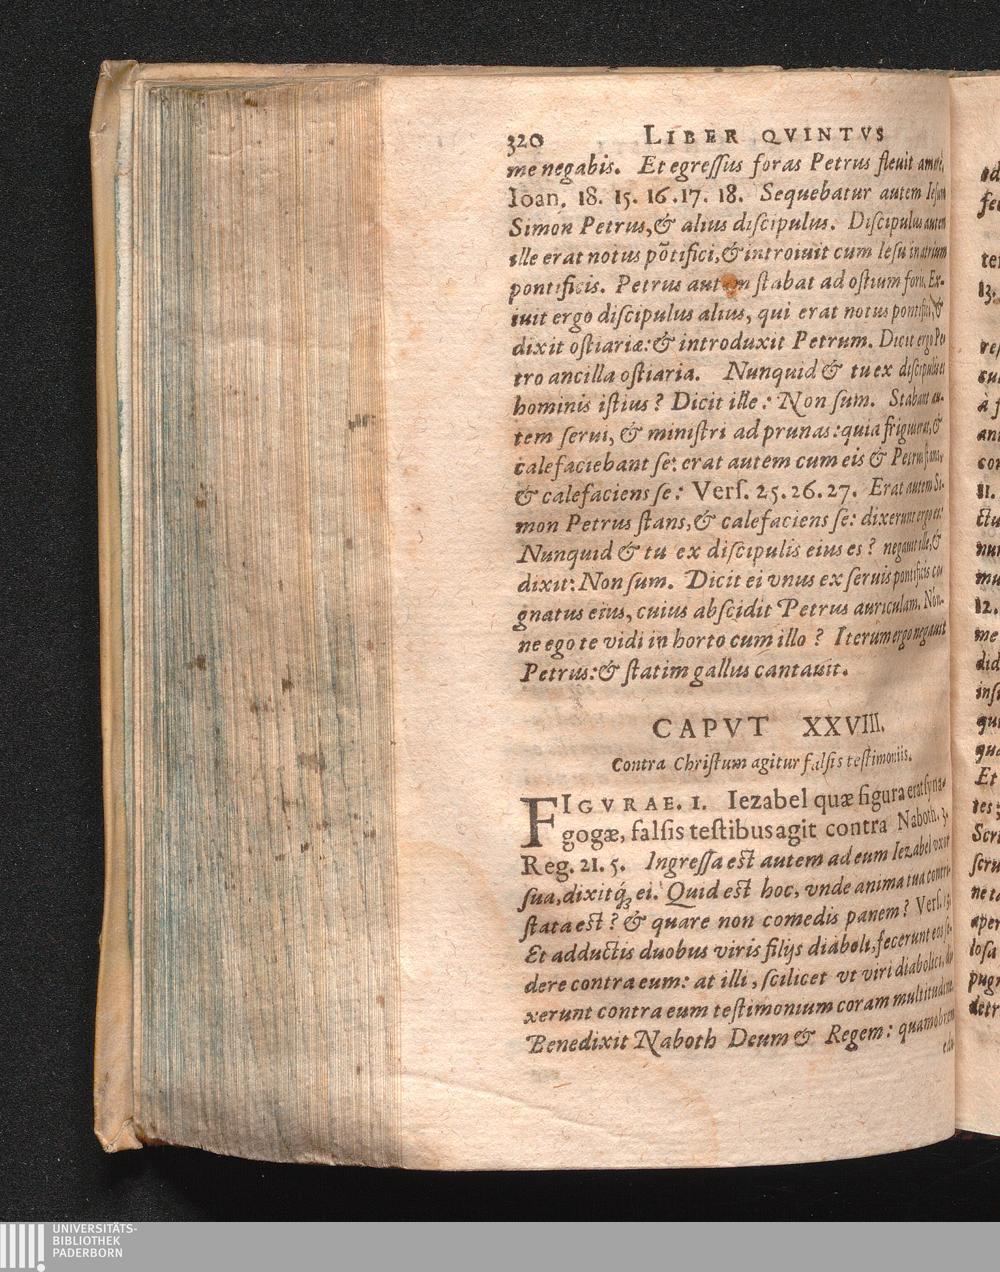 320 LIBER QVINTVS
me negabis. Et egreſſus foras Petrus fleuit amarè.
Ioan. 18. 15. 16. 17. 18. Sequebatur autem Ieſum
Simon Petrus, & alius diſcipulus. Diſcipulus autem
ille erat notus põtifici, & introiuit cum Ieſu in atrium
pontificis. Petrus autem ſtabat ad oſtium foris. Ex-
iuit ergo diſcipulus alius, qui erat notus pontifici, &
dixit oſtiariæ: & introduxit Petrum. Dicit ergo Pe
tro ancilla oſtiaria. Nunquid & tu ex diſcipulis es
hominis iſtius? Dicit ille: Non ſum. Stabant au-
tem ſerui, & miniſtri ad prunas: quia frigus erat, &
calefaciebant ſe: erat autem cum eis & Petrus ſtans,
& calefaciens ſe: Verſ. 25. 26. 27. Erat autem Si-
mon Petrus ſtans, & calefaciens ſe: dixerunt ergo ei:
Nunquid & tu ex diſcipulis eius es? negauit ille, &
dixit: Non ſum. Dicit ei vnus ex ſeruis pontificis co
gnatus eius, cuius abſcidit Petrus auriculam. Non-
ne ego te vidi in horto cum illo? Iterum ergo negauit
Petrus: & ſtatim gallus cantauit.
CAPVT XXVIII.
Contra Chriſtum agitur falſis teſtimoniis.
FIGVRAE. I. Iezabel quæ figura erat ſyna-
gogæ, falſis teſtibus agit contra Naboth. 3.
Reg. 21. 5. Ingreſſa eſt autem ad eum Iezabel vxor
ſua, dixitq́; ei. Quid eſt hoc, vnde anima tua contri-
ſtata eſt? & quare non comedis panem? Verſ.
Et adductis duobus viris filijs diaboli, fecerunt eos ſe-
dere contra eum: at illi, ſcilicet vt viri diabolici, di
xerunt contra eum teſtimonium coram multitudine.
Benedixit Naboth Deum & Regem: quamobrem
UNIVERSITÄTS-
BIBLIOTHEK
PADERBORN